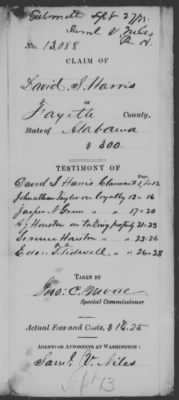 Submitted Sept 27/75
Saml V Niles
No. 13,088
CLAIM OF
David S. Harris
of
Fayette County,
State of Alabama
$ 300.
TESTIMONY OF
David S. Harris Claimant 1 to 12
Johnathan Taylor on loyalty 13-16
Jasper N. " " 17-20
H J Houston on taking property 21-25
" 25-26
Tidwell " 26-28
TAKEN BY
Jno: C. Moore
Special Commissioner
Actual Fees and Costs, $ 12.25
AGENTS OR ATTORNEYS AT WASHINGTON:
Saml. V. Niles
Sept 13